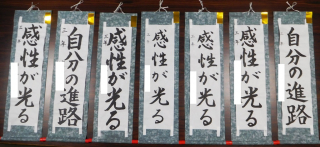 感性が光る
自分の進路
感性が光る
感性が光る
感性が光る
感性が光る
自分の進路